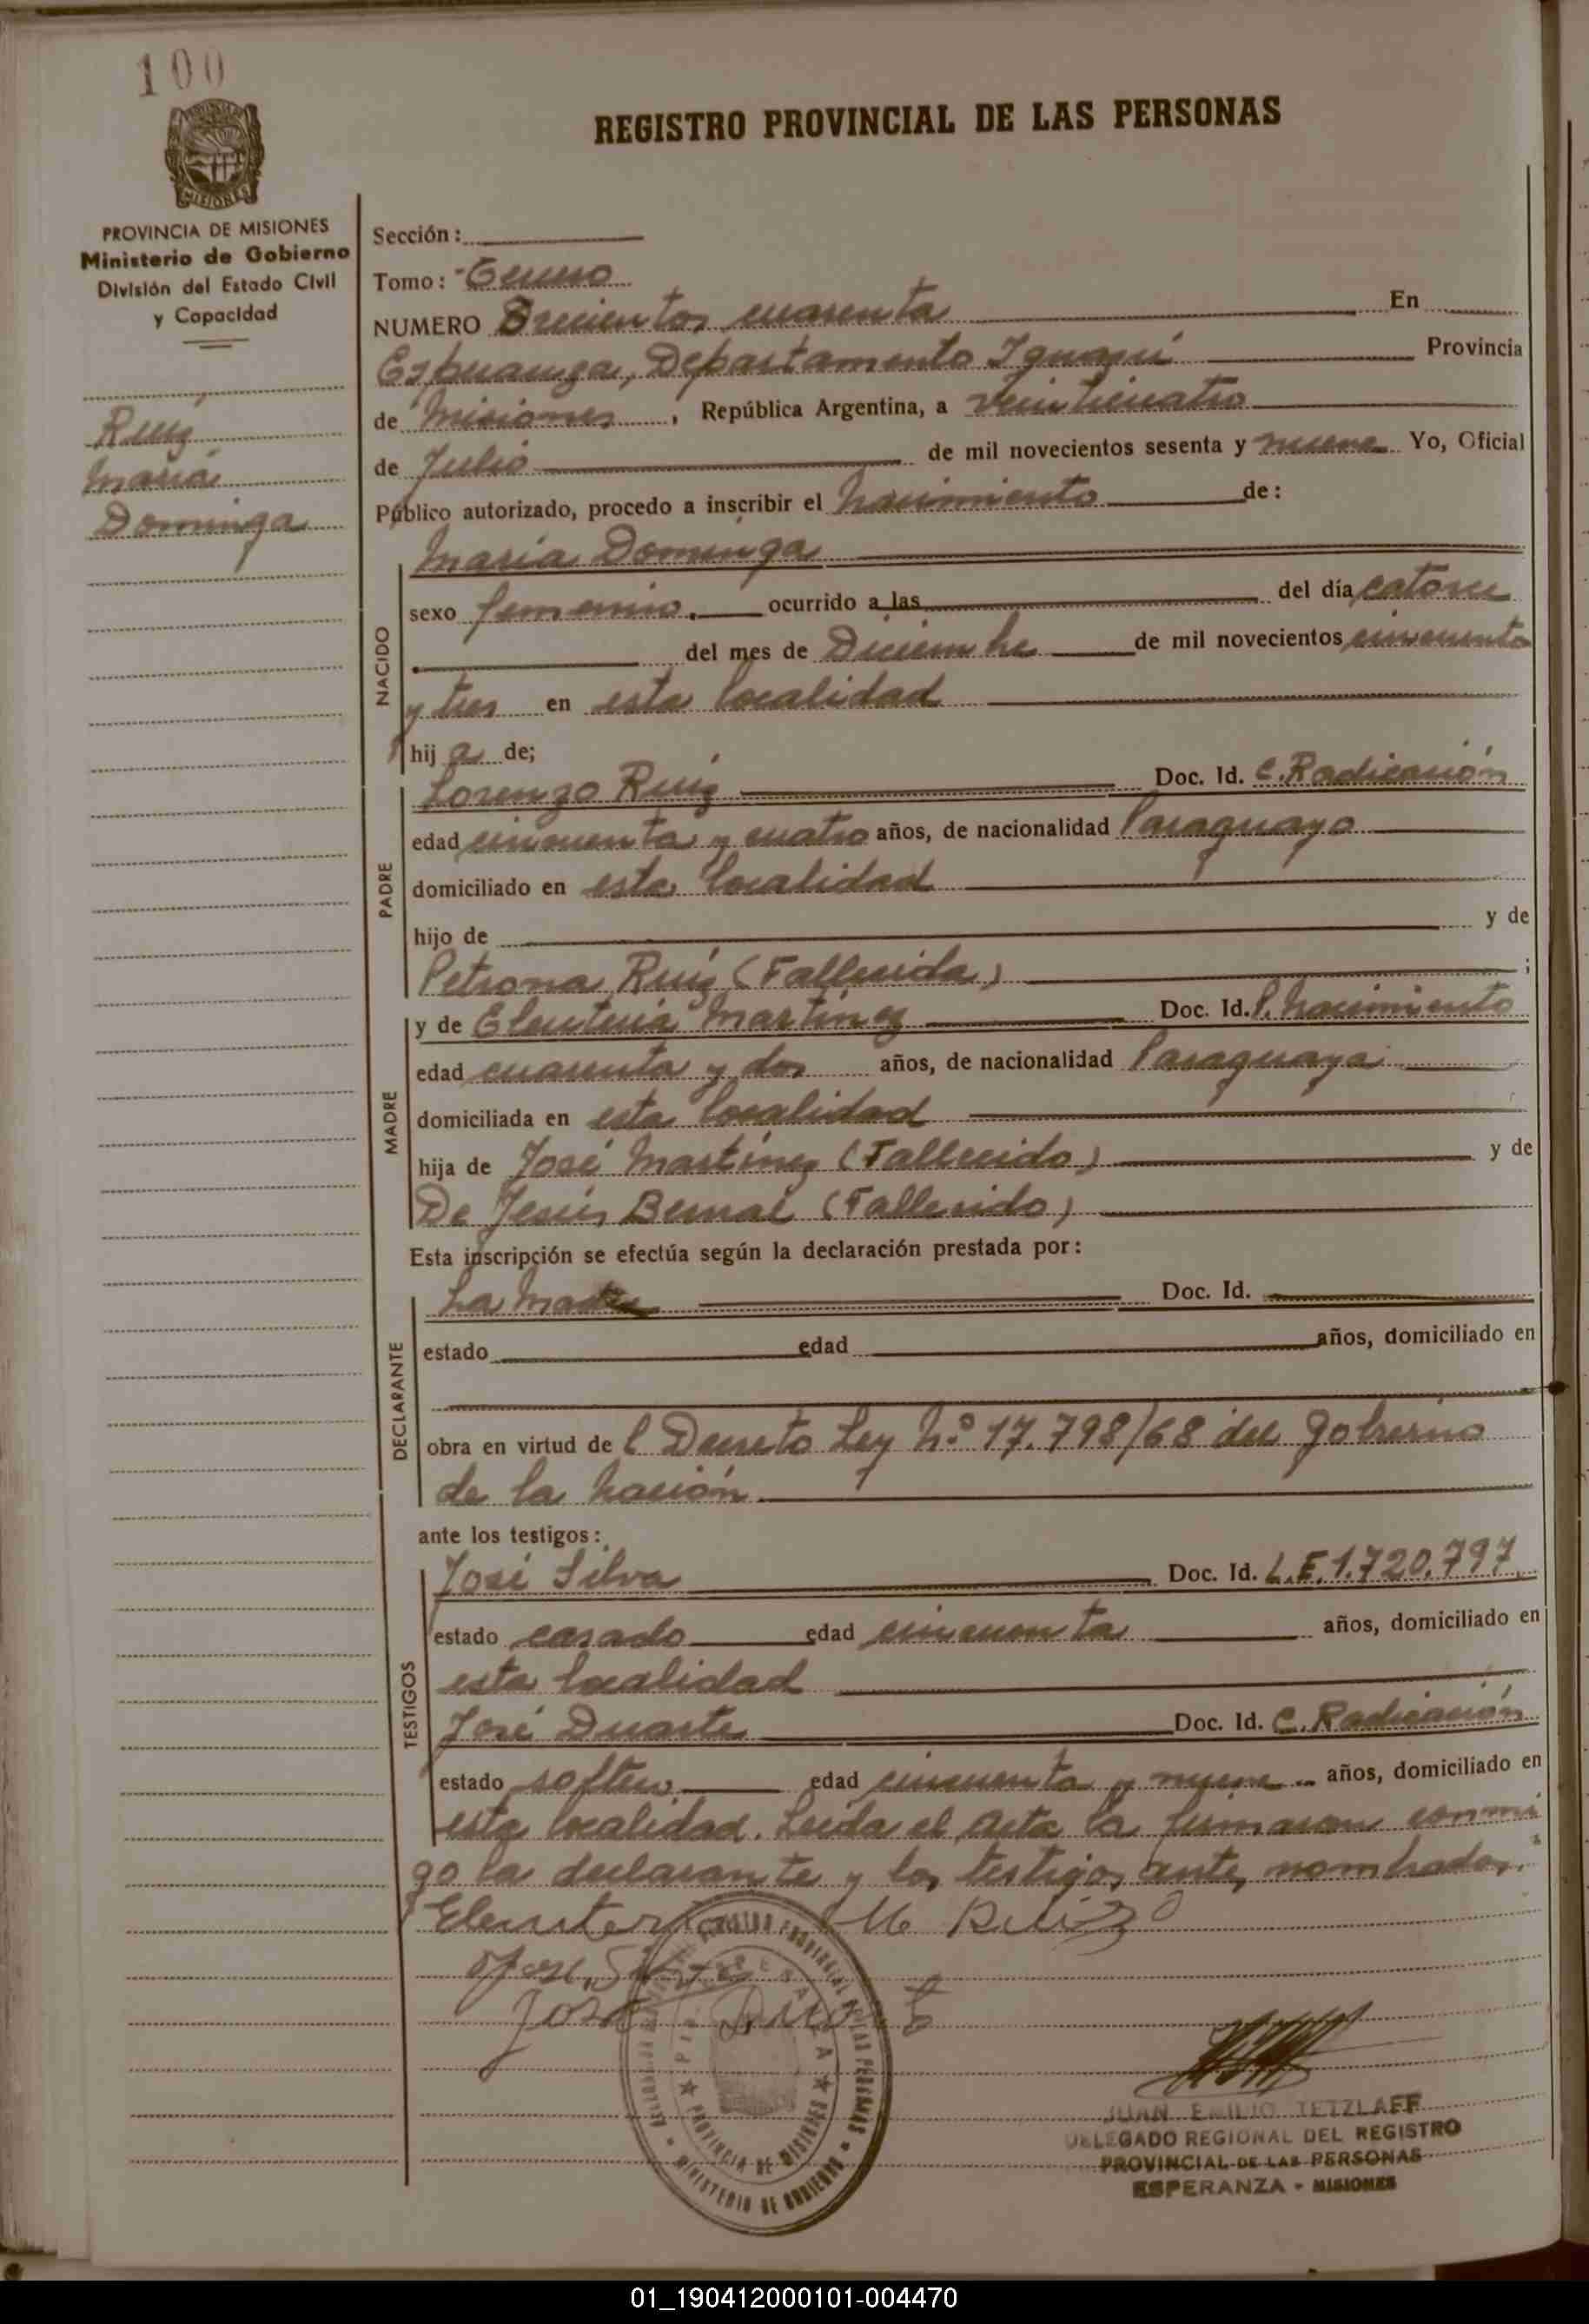 100
REGISTRO PROVINCIAL DE LAS PERSONAS
MISIONES
PROVINCIA DE MISIONES
Ministerio de Gobierno
División del Estado Civil
y Capacidad
Ruíz
María
Dominga
Sección:
Tomo: Tercero
NUMERO Trecientos cuarenta En
Esperanza, Departamento Iguazú Provincia
de Misiones, República Argentina, a veinticuatro
de Julio de mil novecientos sesenta y nueve Yo, Oficial
Público autorizado, procedo a inscribir el nacimiento de:
NACIDO
María Dominga
sexo femenino. ocurrido a las del día catorce
del mes de Diciembre de mil novecientos cincuenta
y tres en esta localidad
hij a de;
PADRE
Lorenzo Ruíz Doc. Id. C. Radicación
edad cincuenta y cuatro años, de nacionalidad Paraguayo
domiciliado en esta localidad
hijo de y de
Petrona Ruíz (Fallecida);
MADRE
y de Eleuteria Martínez Doc. Id. P. Nacimiento
edad cuarenta y dos años, de nacionalidad Paraguaya
domiciliada en esta localidad
hija de José Martínez (Fallecido) y de
De Jesús Bernal (Fallecido)
Esta inscripción se efectúa según la declaración prestada por:
DECLARANTE
La Madre Doc. Id.
estado edad años, domiciliado en
obra en virtud de l Decreto Ley Nº 17.798/68 del Gobierno
de la Nación
ante los testigos:
TESTIGOS
José Silva Doc. Id. L.E. 1.720.797
estado casado edad cincuenta años, domiciliado en
esta localidad
José Duarte Doc. Id. C. Radicación
estado soltero edad cincuenta y nueve años, domiciliado en
esta localidad. Leída el acta la firmaron conmi
go la declarante y los testigos ante, nombrados.
Eleuteria M Ruiz
Jose Silva
José Duarte
PROVINCIA DE MISIONES
MINISTERIO DE GOBIERNO
JUAN EMILIO TETZLAFF
DELEGADO REGIONAL DEL REGISTRO
PROVINCIAL DE LAS PERSONAS
ESPERANZA - MISIONES
01_190412000101-004470